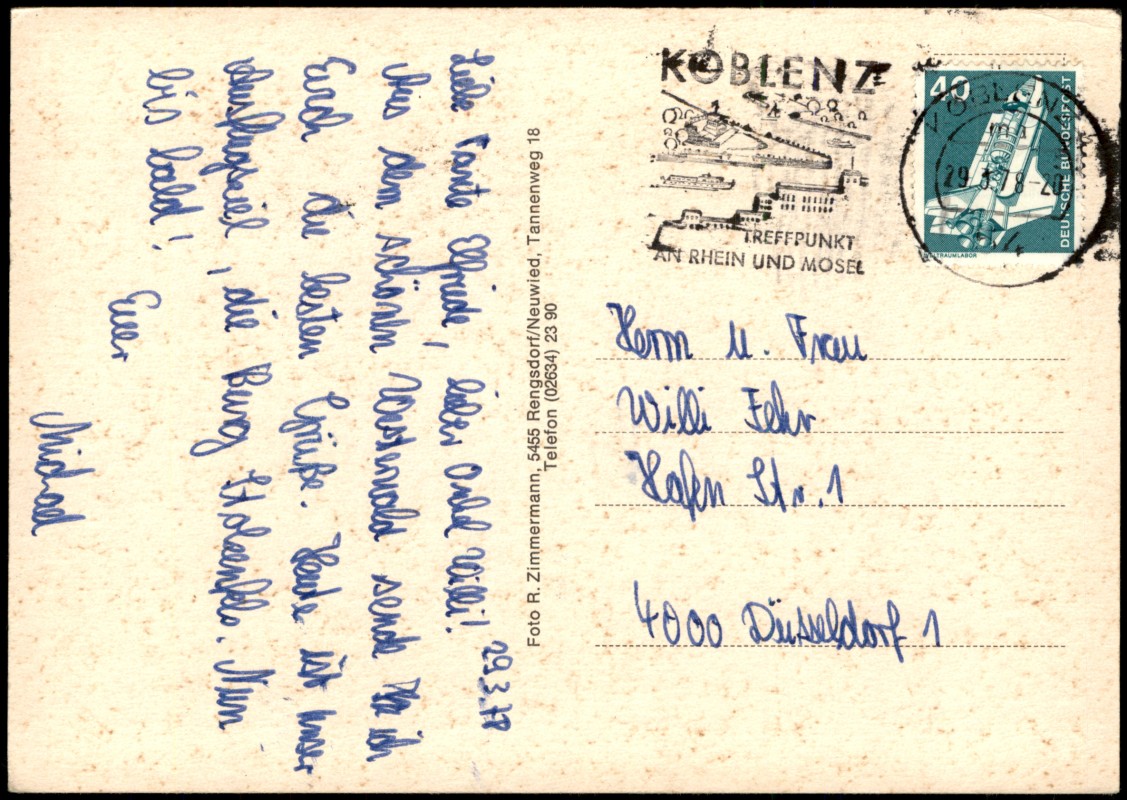 29.3.78
Liebe Tante Elfriede, lieber Onkel Willi!
Aus dem schönen Westerwald sende ich
Euch die besten Grüße. Heute ist unser
Ausflugsziel, die Burg Stolzenfels. Nun
bis bald!
Euer
Michael
Foto R. Zimmermann, 5455 Rengsdorf/Neuwied, Tannenweg 18
Telefon (02634) 23 90
KOBLENZ
TREFFPUNKT
AN RHEIN UND MOSEL
40
DEUTSCHE BUNDESPOST
WELTRAUMLABOR
KOBLENZ
29.3.78-20
Herrn u. Frau
Willi Fehr
Hafen Str. 1
4000 Düsseldorf 1